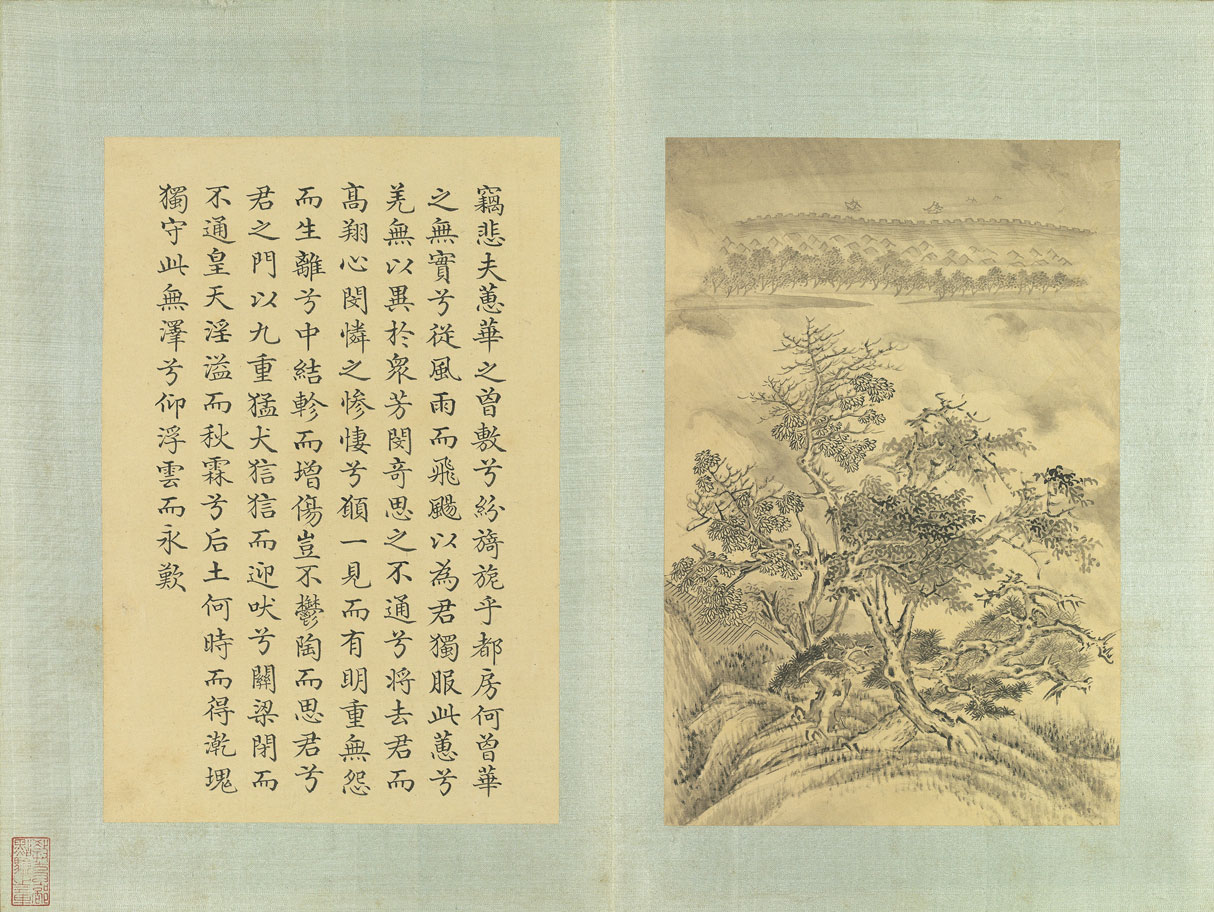 竊悲夫蕙華之曽敷兮紛旖旎乎都房何曽華
之無實兮從風雨而飛颺以為君獨服此蕙兮
羌無以異於衆芳閔竒思之不通兮将去君而
髙翔心閔憐之慘悽兮願一見而有明重無怨
而生離兮中結軫而增傷豈不鬱陶而思君兮
君之門以九重猛犬狺狺而迎吠兮關梁閉而
不通皇天淫溢而秋霖兮后土何時而得漧塊
獨守此無澤兮仰浮雲而永歎
教育部點驗之章